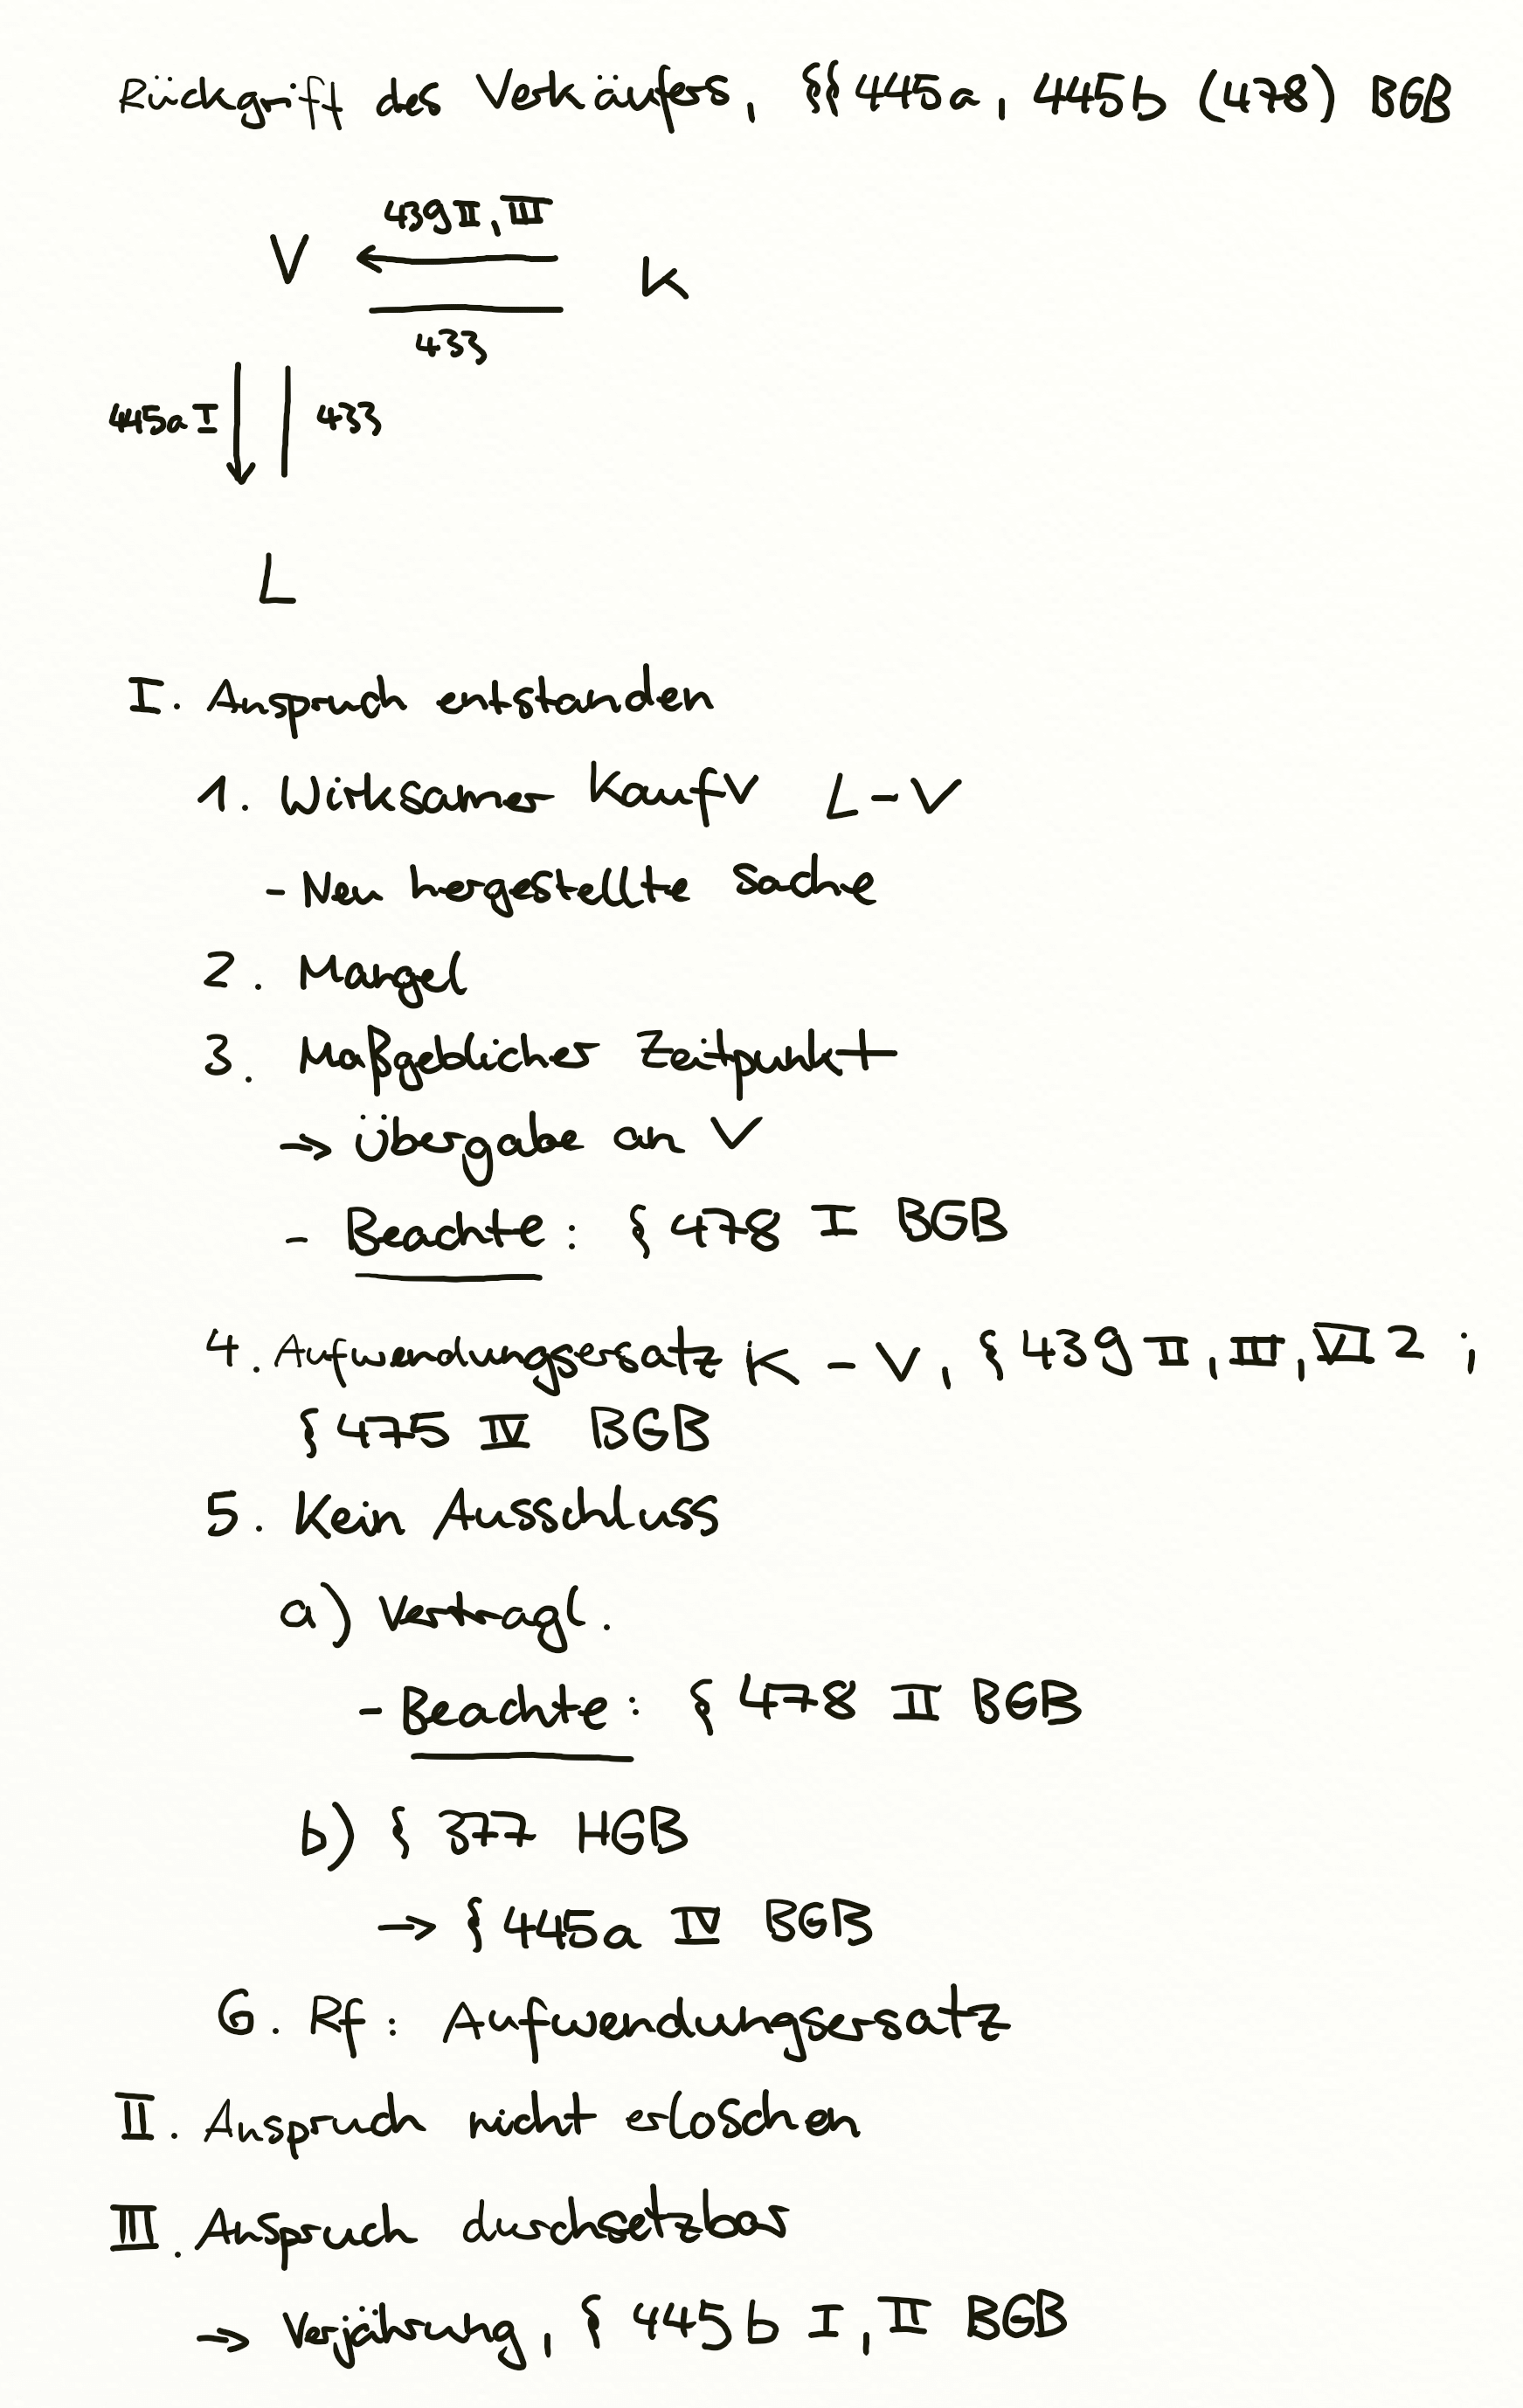 Rückgriff des Verkäufers, §§ 445a, 445b (478) BGB
439 II, III
V K
433
445a I 433
L
I. Anspruch entstanden
1. Wirksamer KaufV L-V
- Neu hergestellte Sache
2. Mangel
3. Maßgeblicher Zeitpunkt
→ Übergabe an V
- Beachte: § 478 I BGB
4. Aufwendungsersatz K - V, § 439 II, III, VI 2 ;
§ 475 IV BGB
5. Kein Ausschluss
a) Vertragl.
- Beachte: § 478 II BGB
b) § 377 HGB
→ § 445a IV BGB
6. Rf: Aufwendungsersatz
II. Anspruch nicht erloschen
III. Anspruch durchsetzbar
→ Verjährung, § 445b I, II BGB